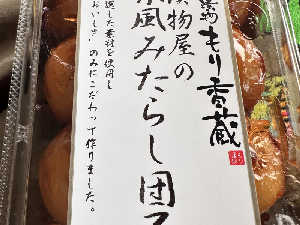 もり香蔵
漬物屋の
風みたらし団子
選した素材を使用し
おいしさ"のみにこだわって作りました。